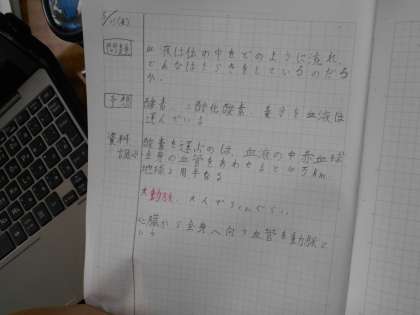 5/11(木)
問題 血液は体の中をどのように流れ、
どんなはたらきをしているのだろう
か。
予想 酸素、二酸化酸素、養分を血液は
運んでいる
資料 酸素を運ぶのは、血液の中赤血球
調べ 全身の血管をあわせると10万km
地球2周半なる
大動脈、大人で
心臓から全身へ向う血管を動脈と
いう